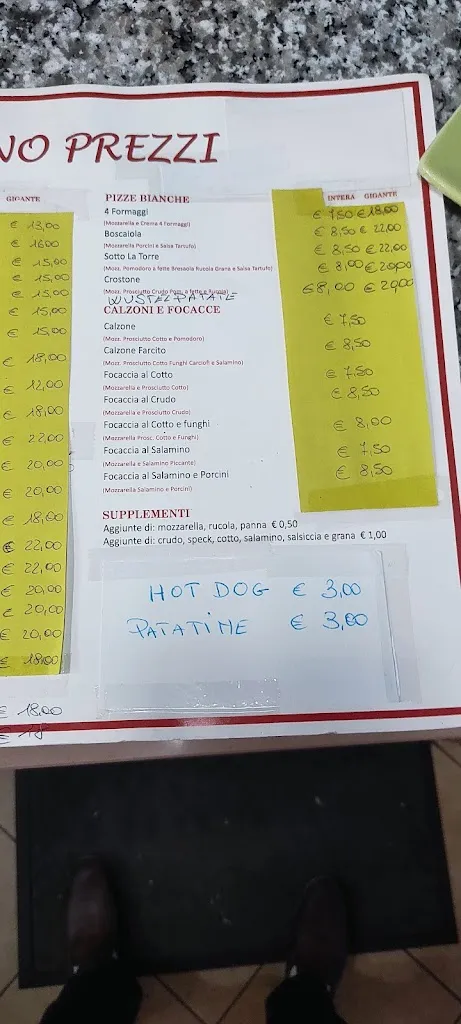 NO PREZZI
GIGANTE
€ 13,00
€ 16,00
€ 15,00
€ 15,00
€ 15,00
€ 15,00
€ 15,00
€ 18,00
€ 12,00
€ 18,00
€ 22,00
€ 20,00
€ 20,00
€ 18,00
€ 22,00
€ 22,00
€ 20,00
€ 20,00
€ 20,00
€ 18,00
€ 18,00
€ 18
PIZZE BIANCHE INTERA GIGANTE
4 Formaggi € 7,50 € 18,00
(Mozzarella e Crema 4 Formaggi)
Boscaiola € 8,50 € 22,00
(Mozzarella Porcini e Salsa Tartufo)
Sotto La Torre € 8,50 € 22,00
(Mozz. Pomodoro a fette Bresaola Rucola Grana e Salsa Tartufo)
Crostone € 8,00 € 20,00
(Mozz. Prosciutto Crudo Pom. a fette e Rucola)
WUSTEL PATATE € 8,00 € 20,00
CALZONI E FOCACCE
Calzone € 7,50
(Mozz. Prosciutto Cotto e Pomodoro)
Calzone Farcito € 8,50
(Mozz. Prosciutto Cotto Funghi Carciofi e Salamino)
Focaccia al Cotto € 7,50
(Mozzarella e Prosciutto Cotto)
Focaccia al Crudo € 8,50
(Mozzarella e Prosciutto Crudo)
Focaccia al Cotto e funghi € 8,00
(Mozzarella Prosc. Cotto e Funghi)
Focaccia al Salamino € 7,50
(Mozzarella e Salamino Piccante)
Focaccia al Salamino e Porcini € 8,50
(Mozzarella Salamino e Porcini)
SUPPLEMENTI
Aggiunte di: mozzarella, rucola, panna € 0,50
Aggiunte di: crudo, speck, cotto, salamino, salsiccia e grana € 1,00
HOT DOG € 3,00
PATATINE € 3,00